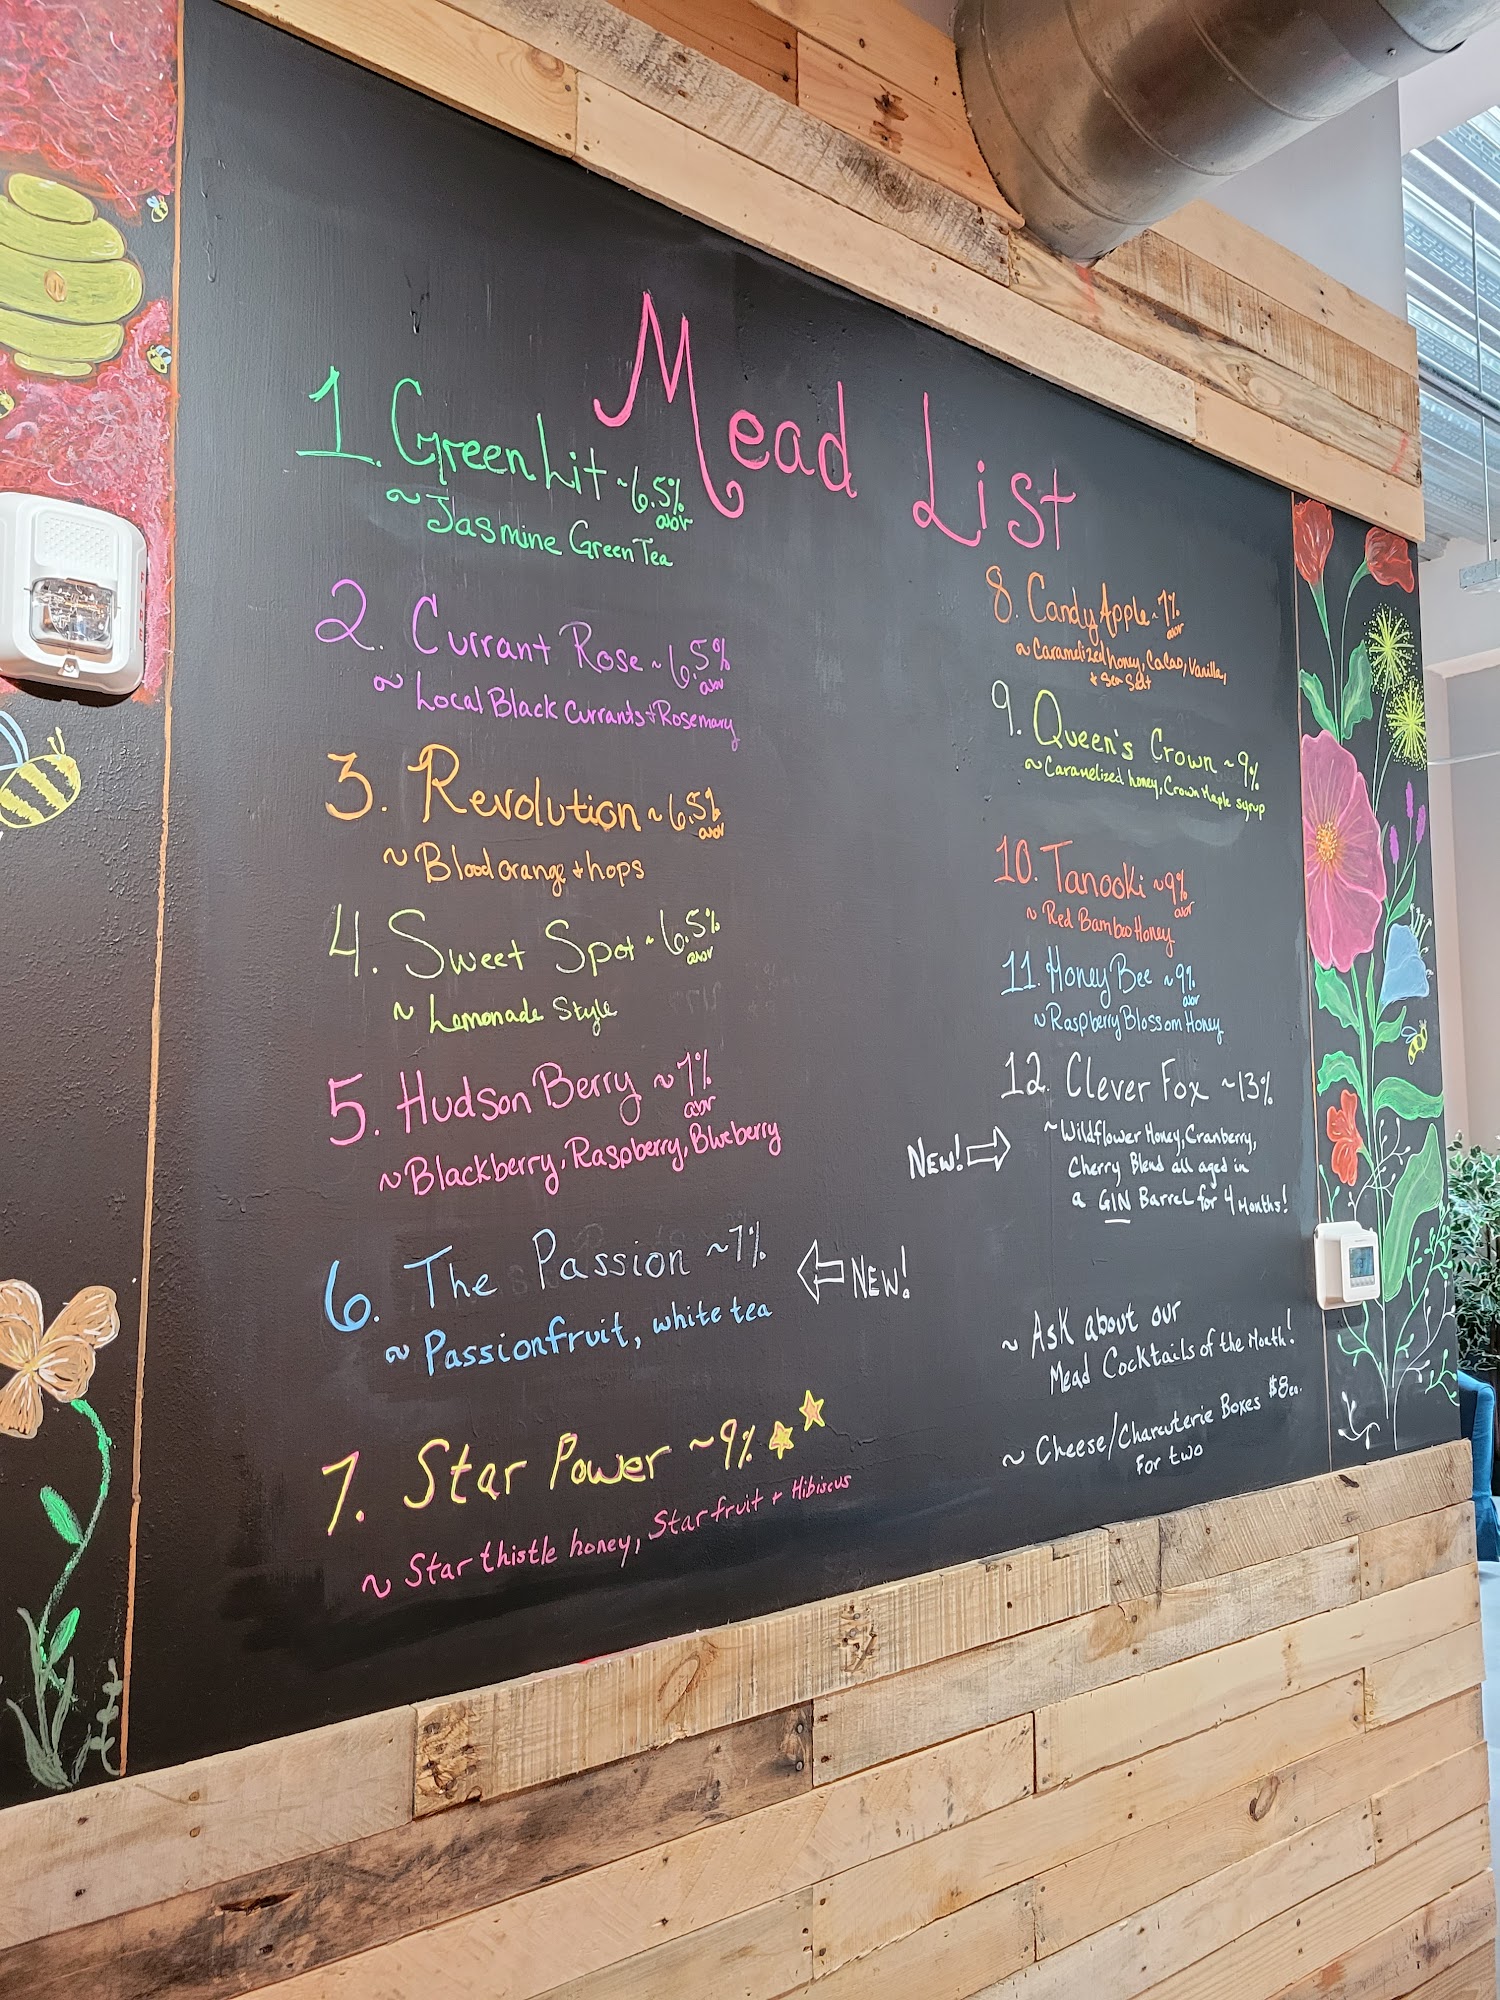 Mead List
1. Green Lit ~6.5% abv
~ Jasmine Green Tea
2. Currant Rose ~6.5% abv
~ Local Black Currants + Rosemary
3. Revolution ~6.5% abv
~ Blood orange + hops
4. Sweet Spot ~6.5% abv
~ Lemonade Style
5. Hudson Berry ~7% abv
~ Blackberry, Raspberry, Blueberry
6. The Passion ~7%
NEW!
~ Passionfruit, white tea
7. Star Power ~9%
~ Star thistle honey, Starfruit + Hibiscus
8. Candy Apple ~7% abv
~ Caramelized honey, Cacao, Vanilla,
+ Sea Salt
9. Queen's Crown ~9%
~ Caramelized honey, Crown Maple syrup
10. Tanooki ~9% abv
~ Red Bamboo Honey
11. Honey Bee ~9% abv
~ Raspberry Blossom Honey
12. Clever Fox ~13%
NEW!
~ Wildflower Honey, Cranberry,
Cherry Blend all aged in
a GIN Barrel for 4 Months!
~ Ask about our
Mead Cocktails of the Month!
~ Cheese/Charcuterie Boxes $8ea.
For two